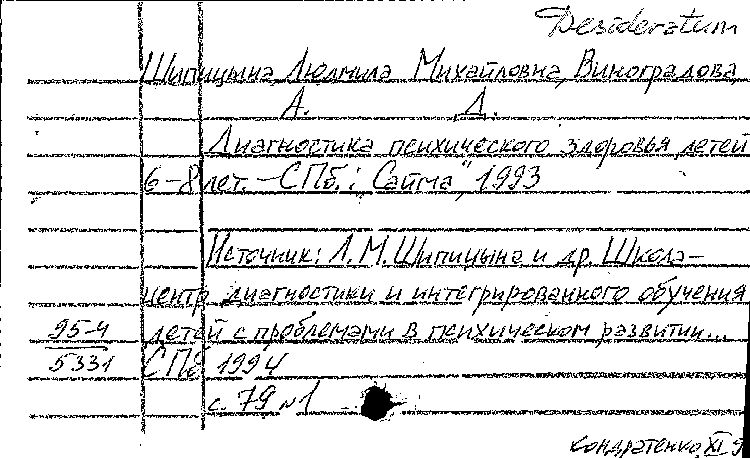 Desideratum
Шипицына Людмила Михайловна, Виноградова
А. Д.
Диагностика психического здоровья детей
6-8 лет. – СПб.: "Сайма", 1993
Источник: Л. М. Шипицына и др. Школа-
центр диагностики и интегрированного обучения
95-4 детей с проблемами в психическом развитии...
5331 СПб 1994
с. 79 №1
Кондратенко, XI 9